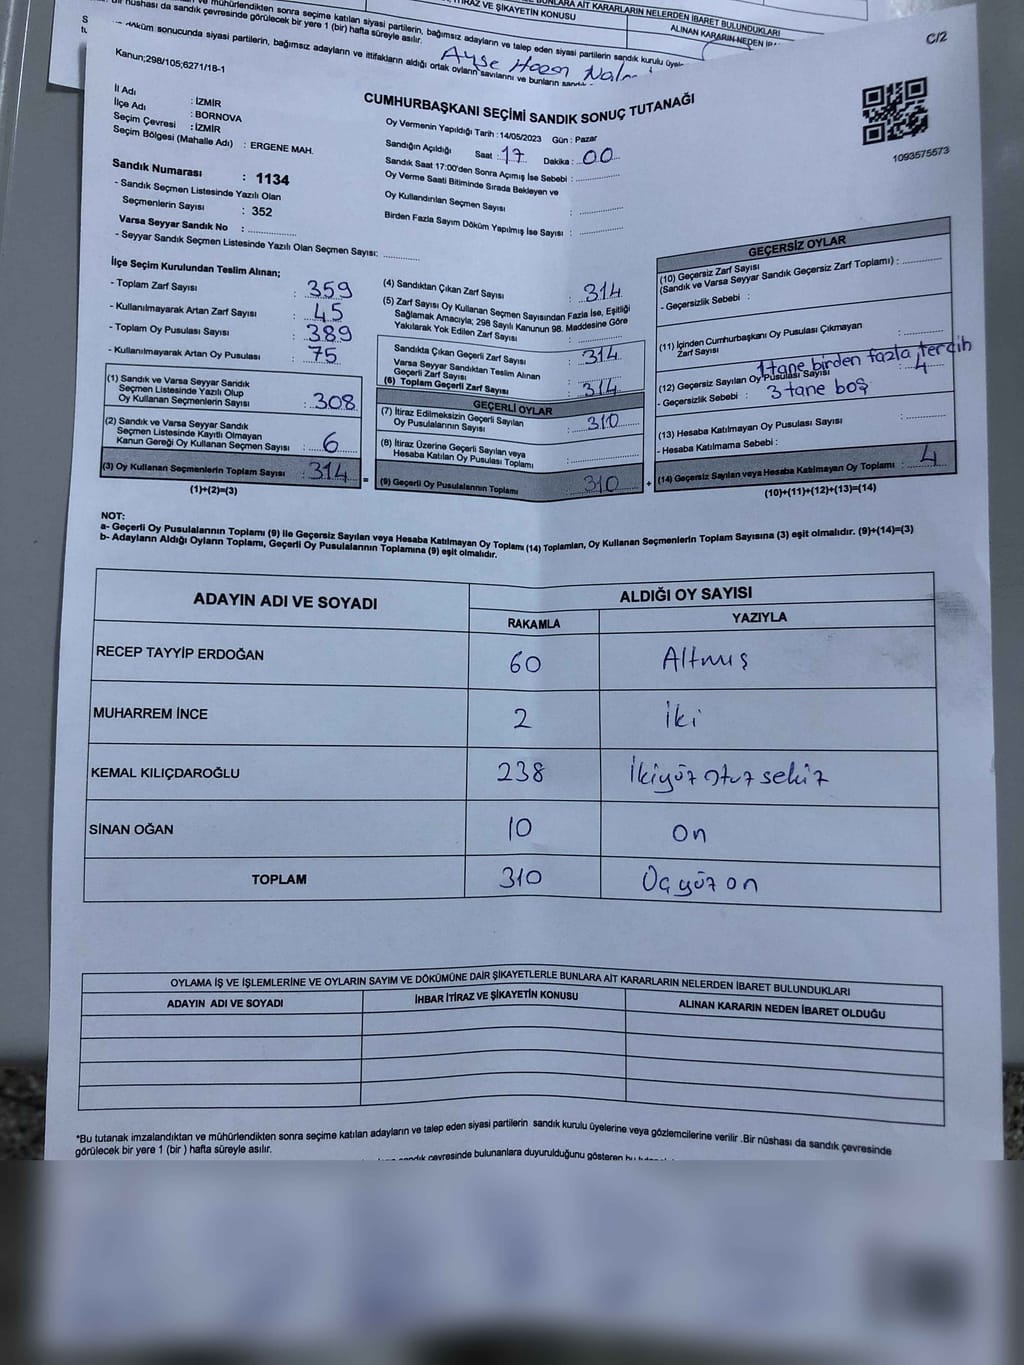 İTİRAZ VE ŞİKAYETİN KONUSU
ALINAN KARARIN NEDEN
mühürlendikten sonra seçime katılan siyasi partilerin, bağımsız adayların ve talep eden siyasi partilerin sandık kurulu üyele
nüshası da sandık çevresinde görülecek bir yere 1 (bir) hafta süreyle asılır.
döküm sonucunda siyasi partilerin, bağımsız adayların ve ittifakların aldığı ortak oyların sayılarını ve bunların
Ayşe
C/2
Kanun;298/105;6271/18-1
CUMHURBAŞKANI SEÇİMİ SANDIK SONUÇ TUTANAĞI
1093575573
İl Adı : İZMİR
İlçe Adı : BORNOVA
Seçim Çevresi : İZMİR
Seçim Bölgesi (Mahalle Adı) : ERGENE MAH.
Sandık Numarası : 1134
- Sandık Seçmen Listesinde Yazılı Olan
Seçmenlerin Sayısı : 352
Varsa Seyyar Sandık No :
- Seyyar Sandık Seçmen Listesinde Yazılı Olan Seçmen Sayısı:
Oy Vermenin Yapıldığı Tarih : 14/05/2023 Gün : Pazar
Sandığın Açıldığı Saat : 17 Dakika : 00
Sandık Saat 17:00'den Sonra Açımış İse Sebebi :
Oy Verme Saati Bitiminde Sırada Bekleyen ve
Oy Kullandırılan Seçmen Sayısı :
Birden Fazla Sayım Döküm Yapılmış İse Sayısı :
İlçe Seçim Kurulundan Teslim Alınan;
- Toplam Zarf Sayısı : 359
- Kullanılmayarak Artan Zarf Sayısı : 45
- Toplam Oy Pusulası Sayısı : 389
- Kullanılmayarak Artan Oy Pusulası : 75
(1) Sandık ve Varsa Seyyar Sandık
Seçmen Listesinde Yazılı Olup
Oy Kullanan Seçmenlerin Sayısı : 308
(2) Sandık ve Varsa Seyyar Sandık
Seçmen Listesinde Kayıtlı Olmayan
Kanun Gereği Oy Kullanan Seçmen Sayısı : 6
(3) Oy Kullanan Seçmenlerin Toplam Sayısı : 314
(1)+(2)=(3)
(4) Sandıktan Çıkan Zarf Sayısı : 314
(5) Zarf Sayısı Oy Kullanan Seçmen Sayısından Fazla İse, Eşitliği
Sağlamak Amacıyla; 298 Sayılı Kanunun 98. Maddesine Göre
Yakılarak Yok Edilen Zarf Sayısı :
Sandıkta Çıkan Geçerli Zarf Sayısı : 314
Varsa Seyyar Sandıktan Teslim Alınan
Geçerli Zarf Sayısı :
(6) Toplam Geçerli Zarf Sayısı : 314
GEÇERLİ OYLAR
(7) İtiraz Edilmeksizin Geçerli Sayılan
Oy Pusulasının Sayısı : 310
(8) İtiraz Üzerine Geçerli Sayılan veya
Hesaba Katılan Oy Pusulası Toplamı :
= (9) Geçerli Oy Pusulalarının Toplamı : 310
GEÇERSİZ OYLAR
(10) Geçersiz Zarf Sayısı
(Sandık ve Varsa Seyyar Sandık Geçersiz Zarf Toplamı) :
- Geçersizlik Sebebi :
(11) İçinden Cumhurbaşkanı Oy Pusulası Çıkmayan
Zarf Sayısı :
1 tane birden fazla tercih
(12) Geçersiz Sayılan Oy Pusulası Sayısı : 4
- Geçersizlik Sebebi : 3 tane boş
(13) Hesaba Katılmayan Oy Pusulası Sayısı :
- Hesaba Katılmama Sebebi :
+ (14) Geçersiz Sayılan veya Hesaba Katılmayan Oy Toplamı : 4
(10)+(11)+(12)+(13)=(14)
NOT:
a- Geçerli Oy Pusulalarının Toplamı (9) ile Geçersiz Sayılan veya Hesaba Katılmayan Oy Toplamı (14) Toplamları, Oy Kullanan Seçmenlerin Toplam Sayısına (3) eşit olmalıdır. (9)+(14)=(3)
b- Adayların Aldığı Oyların Toplamı, Geçerli Oy Pusulalarının Toplamına (9) eşit olmalıdır.
ADAYIN ADI VE SOYADI
ALDIĞI OY SAYISI
RAKAMLA YAZIYLA
RECEP TAYYİP ERDOĞAN 60 Altmış
MUHARREM İNCE 2 İki
KEMAL KILIÇDAROĞLU 238 İkiyüz otuz sekiz
SİNAN OĞAN 10 On
TOPLAM 310 Üçyüz on
OYLAMA İŞ VE İŞLEMLERİNE VE OYLARIN SAYIM VE DÖKÜMÜNE DAİR ŞİKAYETLERLE BUNLARA AİT KARARLARIN NELERDEN İBARET BULUNDUKLARI
ADAYIN ADI VE SOYADI İHBAR İTİRAZ VE ŞİKAYETİN KONUSU ALINAN KARARIN NEDEN İBARET OLDUĞU
*Bu tutanak imzalandıktan ve mühürlendikten sonra seçime katılan adayların ve talep eden siyasi partilerin sandık kurulu üyelerine veya gözlemcilerine verilir .Bir nüshası da sandık çevresinde
görülecek bir yere 1 (bir ) hafta süreyle asılır.
sandık çevresinde bulunanlara duyurulduğunu gösteren bu